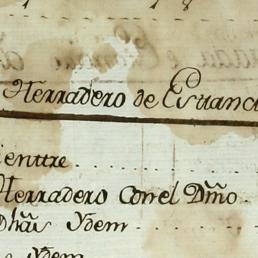 Herradero de Estanci
ienttre
Herradero con el Dm̃o
Dhãs Ydem
Ydem